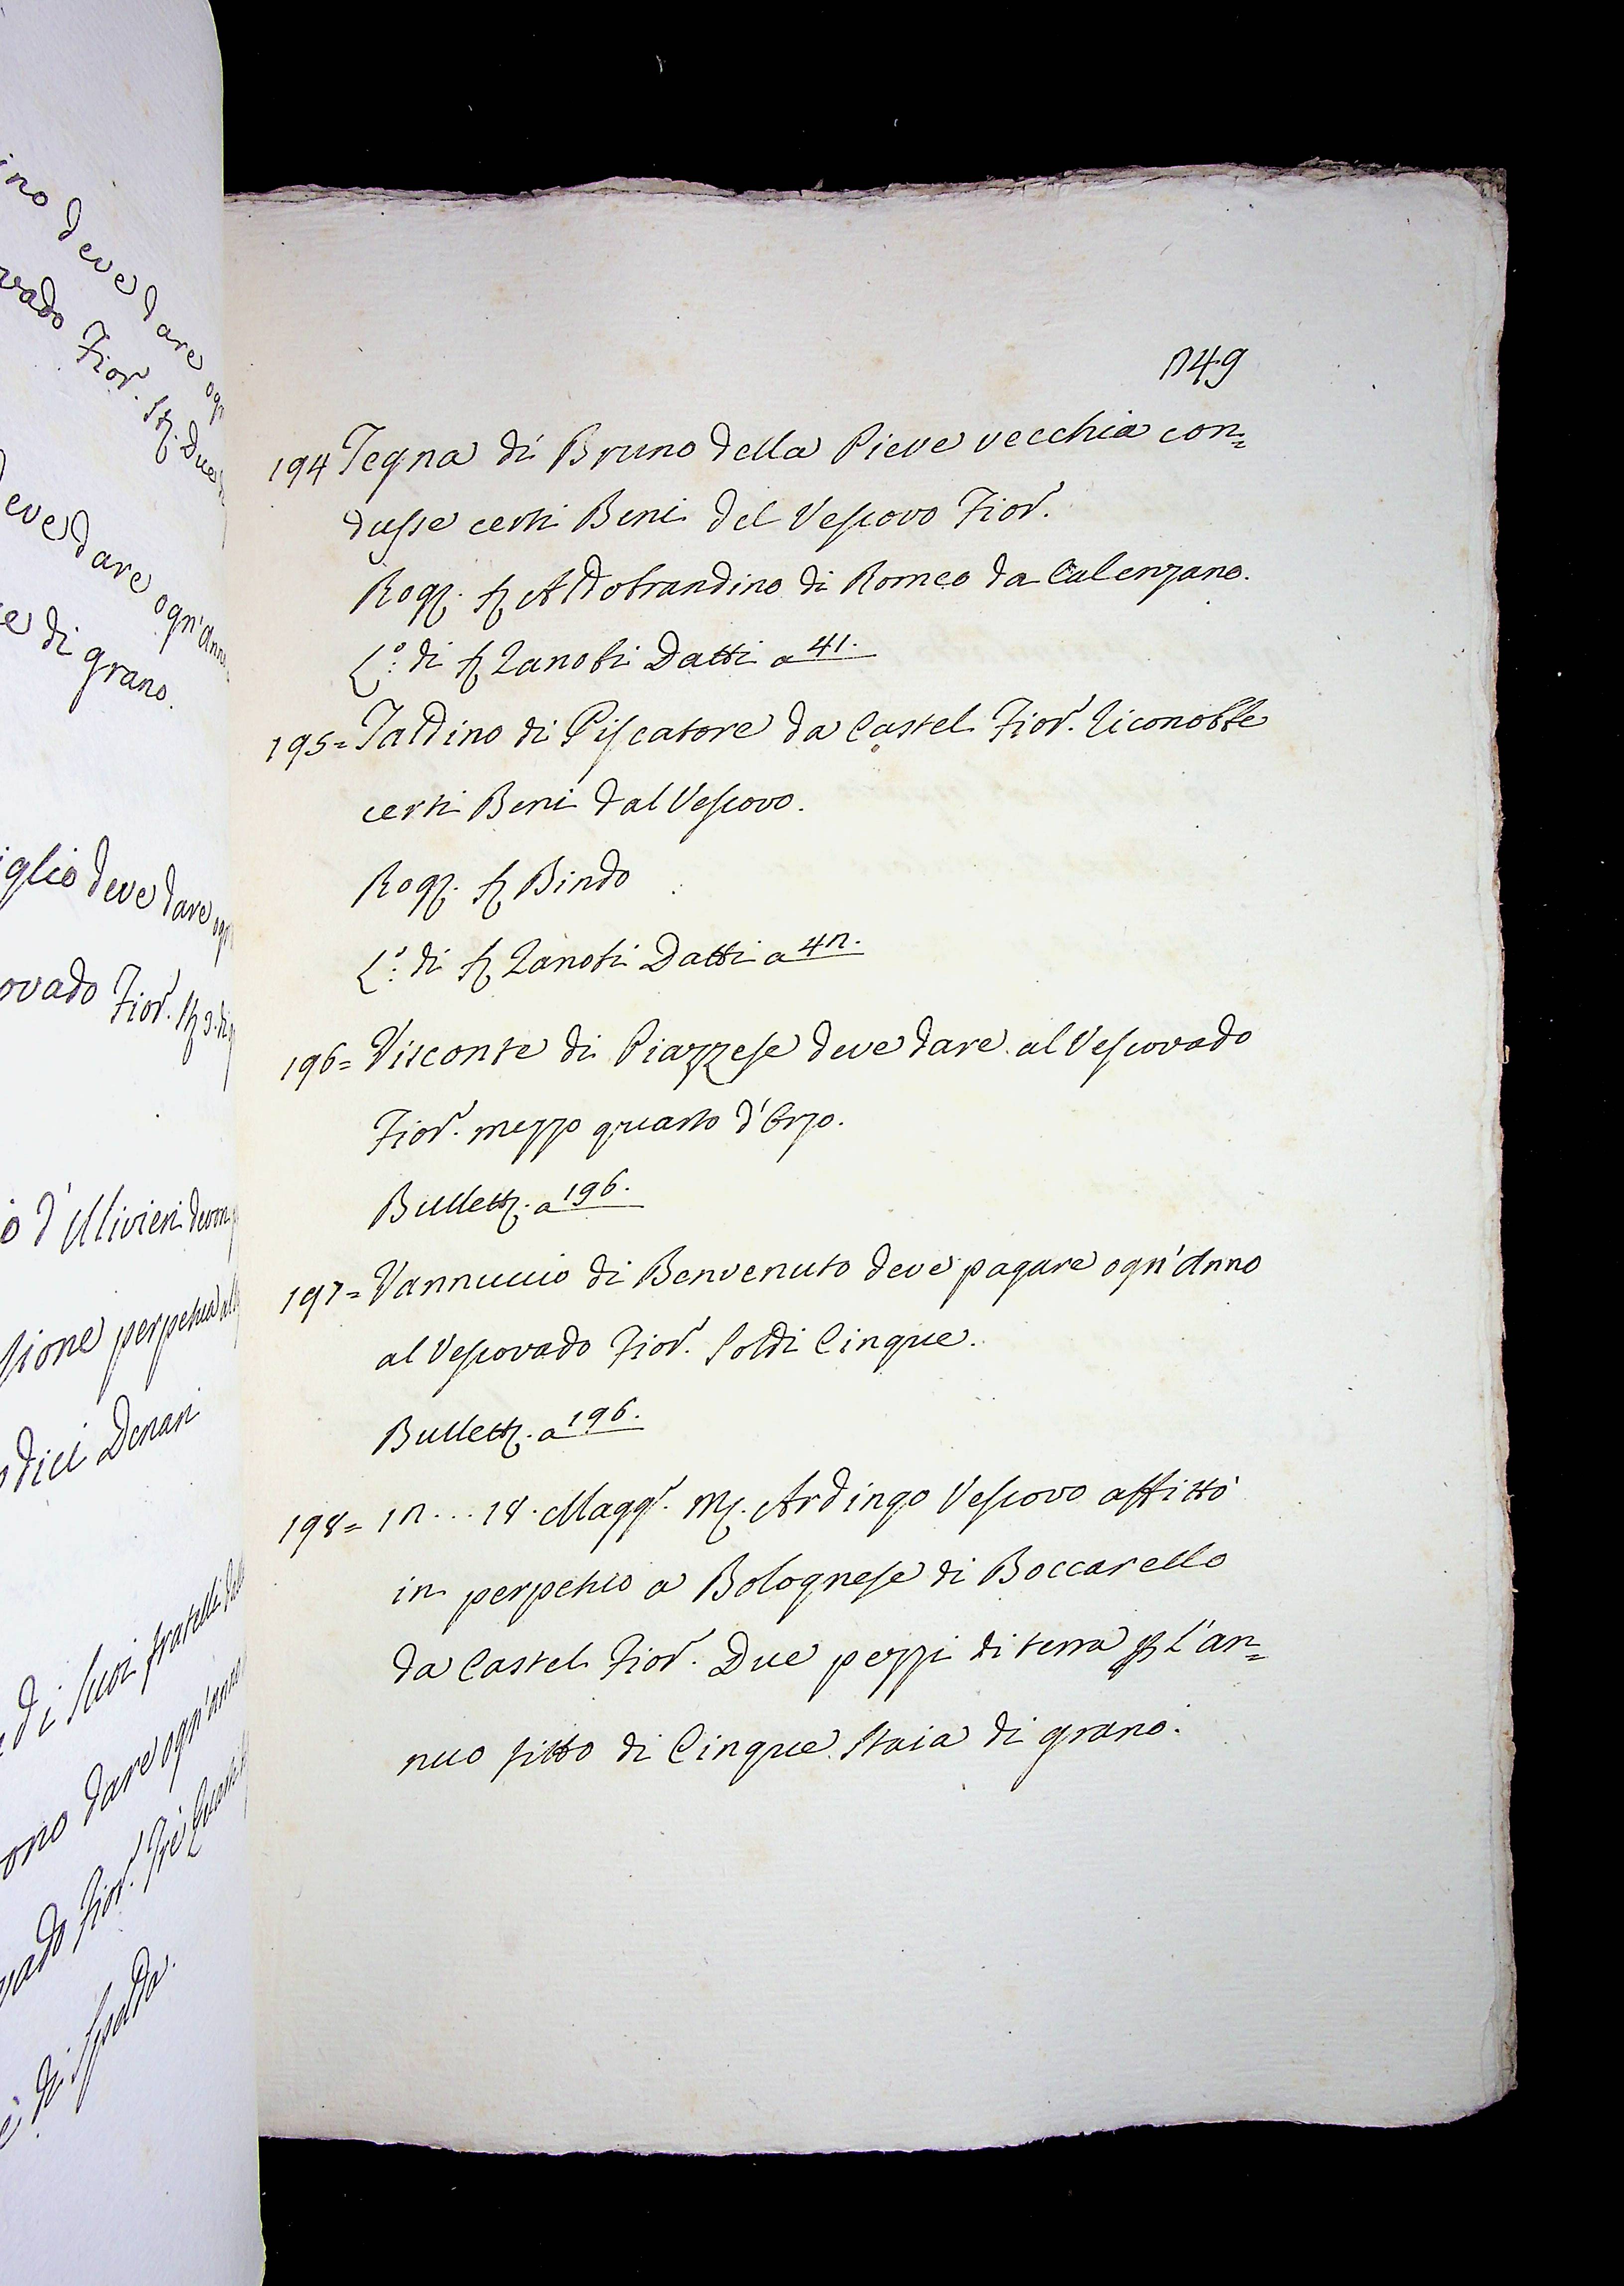 ino deve dare ogn
vado Fior. St. Due
deve dare ogn'Anno
e di grano.
iglio deve dare ogn
ovado Fior. St. 3. di
o d'Ulivieri devon
sione perpetua al
odici Denari
e di suoi fratelli
ono dare ogn'anno
vado Fior. Tre
di Spelda.
249
194 Tegna di Bruno della Pieve vecchia con=
dusse certi Beni del Vescovo Fior.
Rog. f. Aldobrandino di Romeo da Calenzano.
L.o: di f. Zanobi Datti a 41.
195= Taldino di Piscatore da Castel Fior. riconobbe
certi Beni dal Vescovo.
Rog. f. Bindo
L.o: di f. Zanobi Datti a 42.
196= Visconte di Piazzese deve dare al Vescovado
Fior. mezzo quarto d'Orzo.
Bullett. a 196.
197= Vannuccio di Benvenuto deve pagare ogn'Anno
al Vescovado Fior. Soldi Cinque.
Bullett. a 196.
198= 12... 18. Magg. M. Ardingo Vescovo affittò
in perpetuo a Bolognese di Boccarello
da Castel Fior. Due pezzi di terra p l'an=
nuo fitto di Cinque Staia di grano.